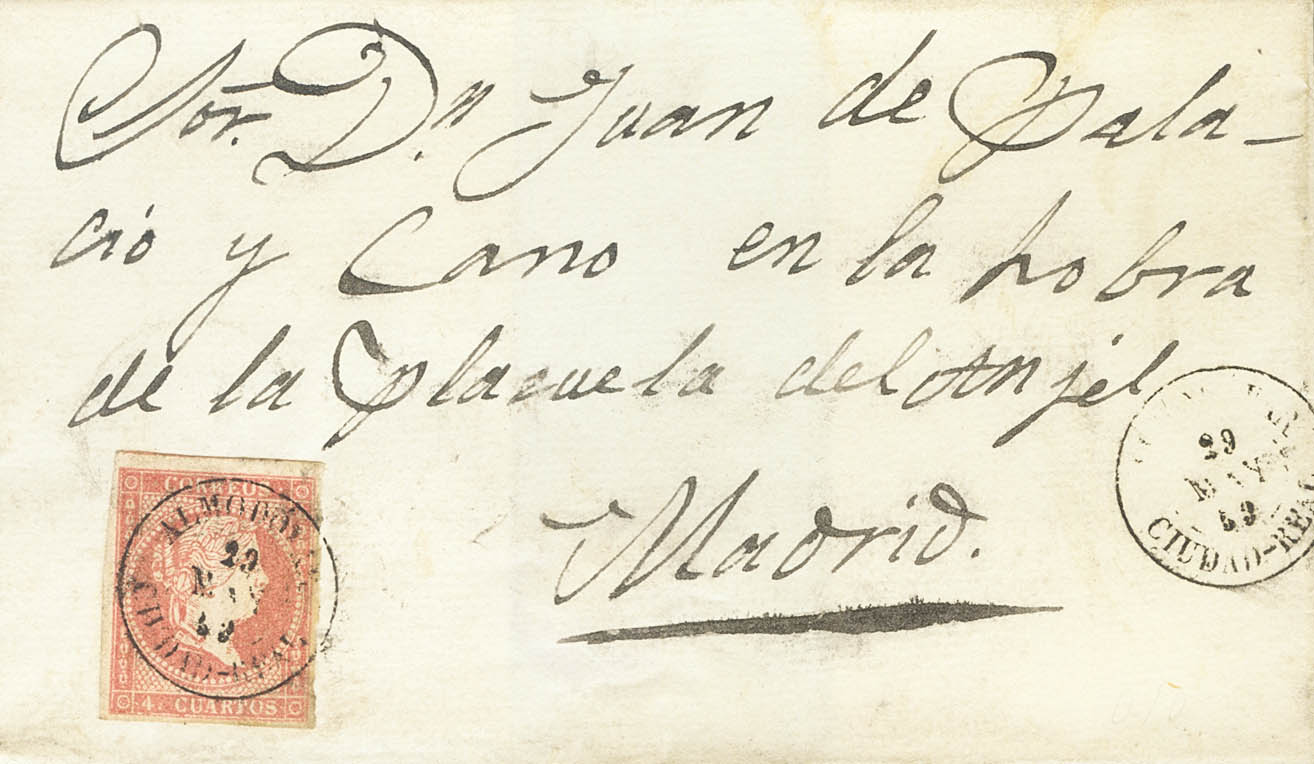 Sor. Dn. Juan de Pala-
cio y Cano en la hobra
de la Plazuela del Anjel
Madrid.
CORREOS
ALMODOVAR
29
MAY
59
CIUDAD-REAL
4. CUARTOS
29
MAY
59
CIUDAD-REAL